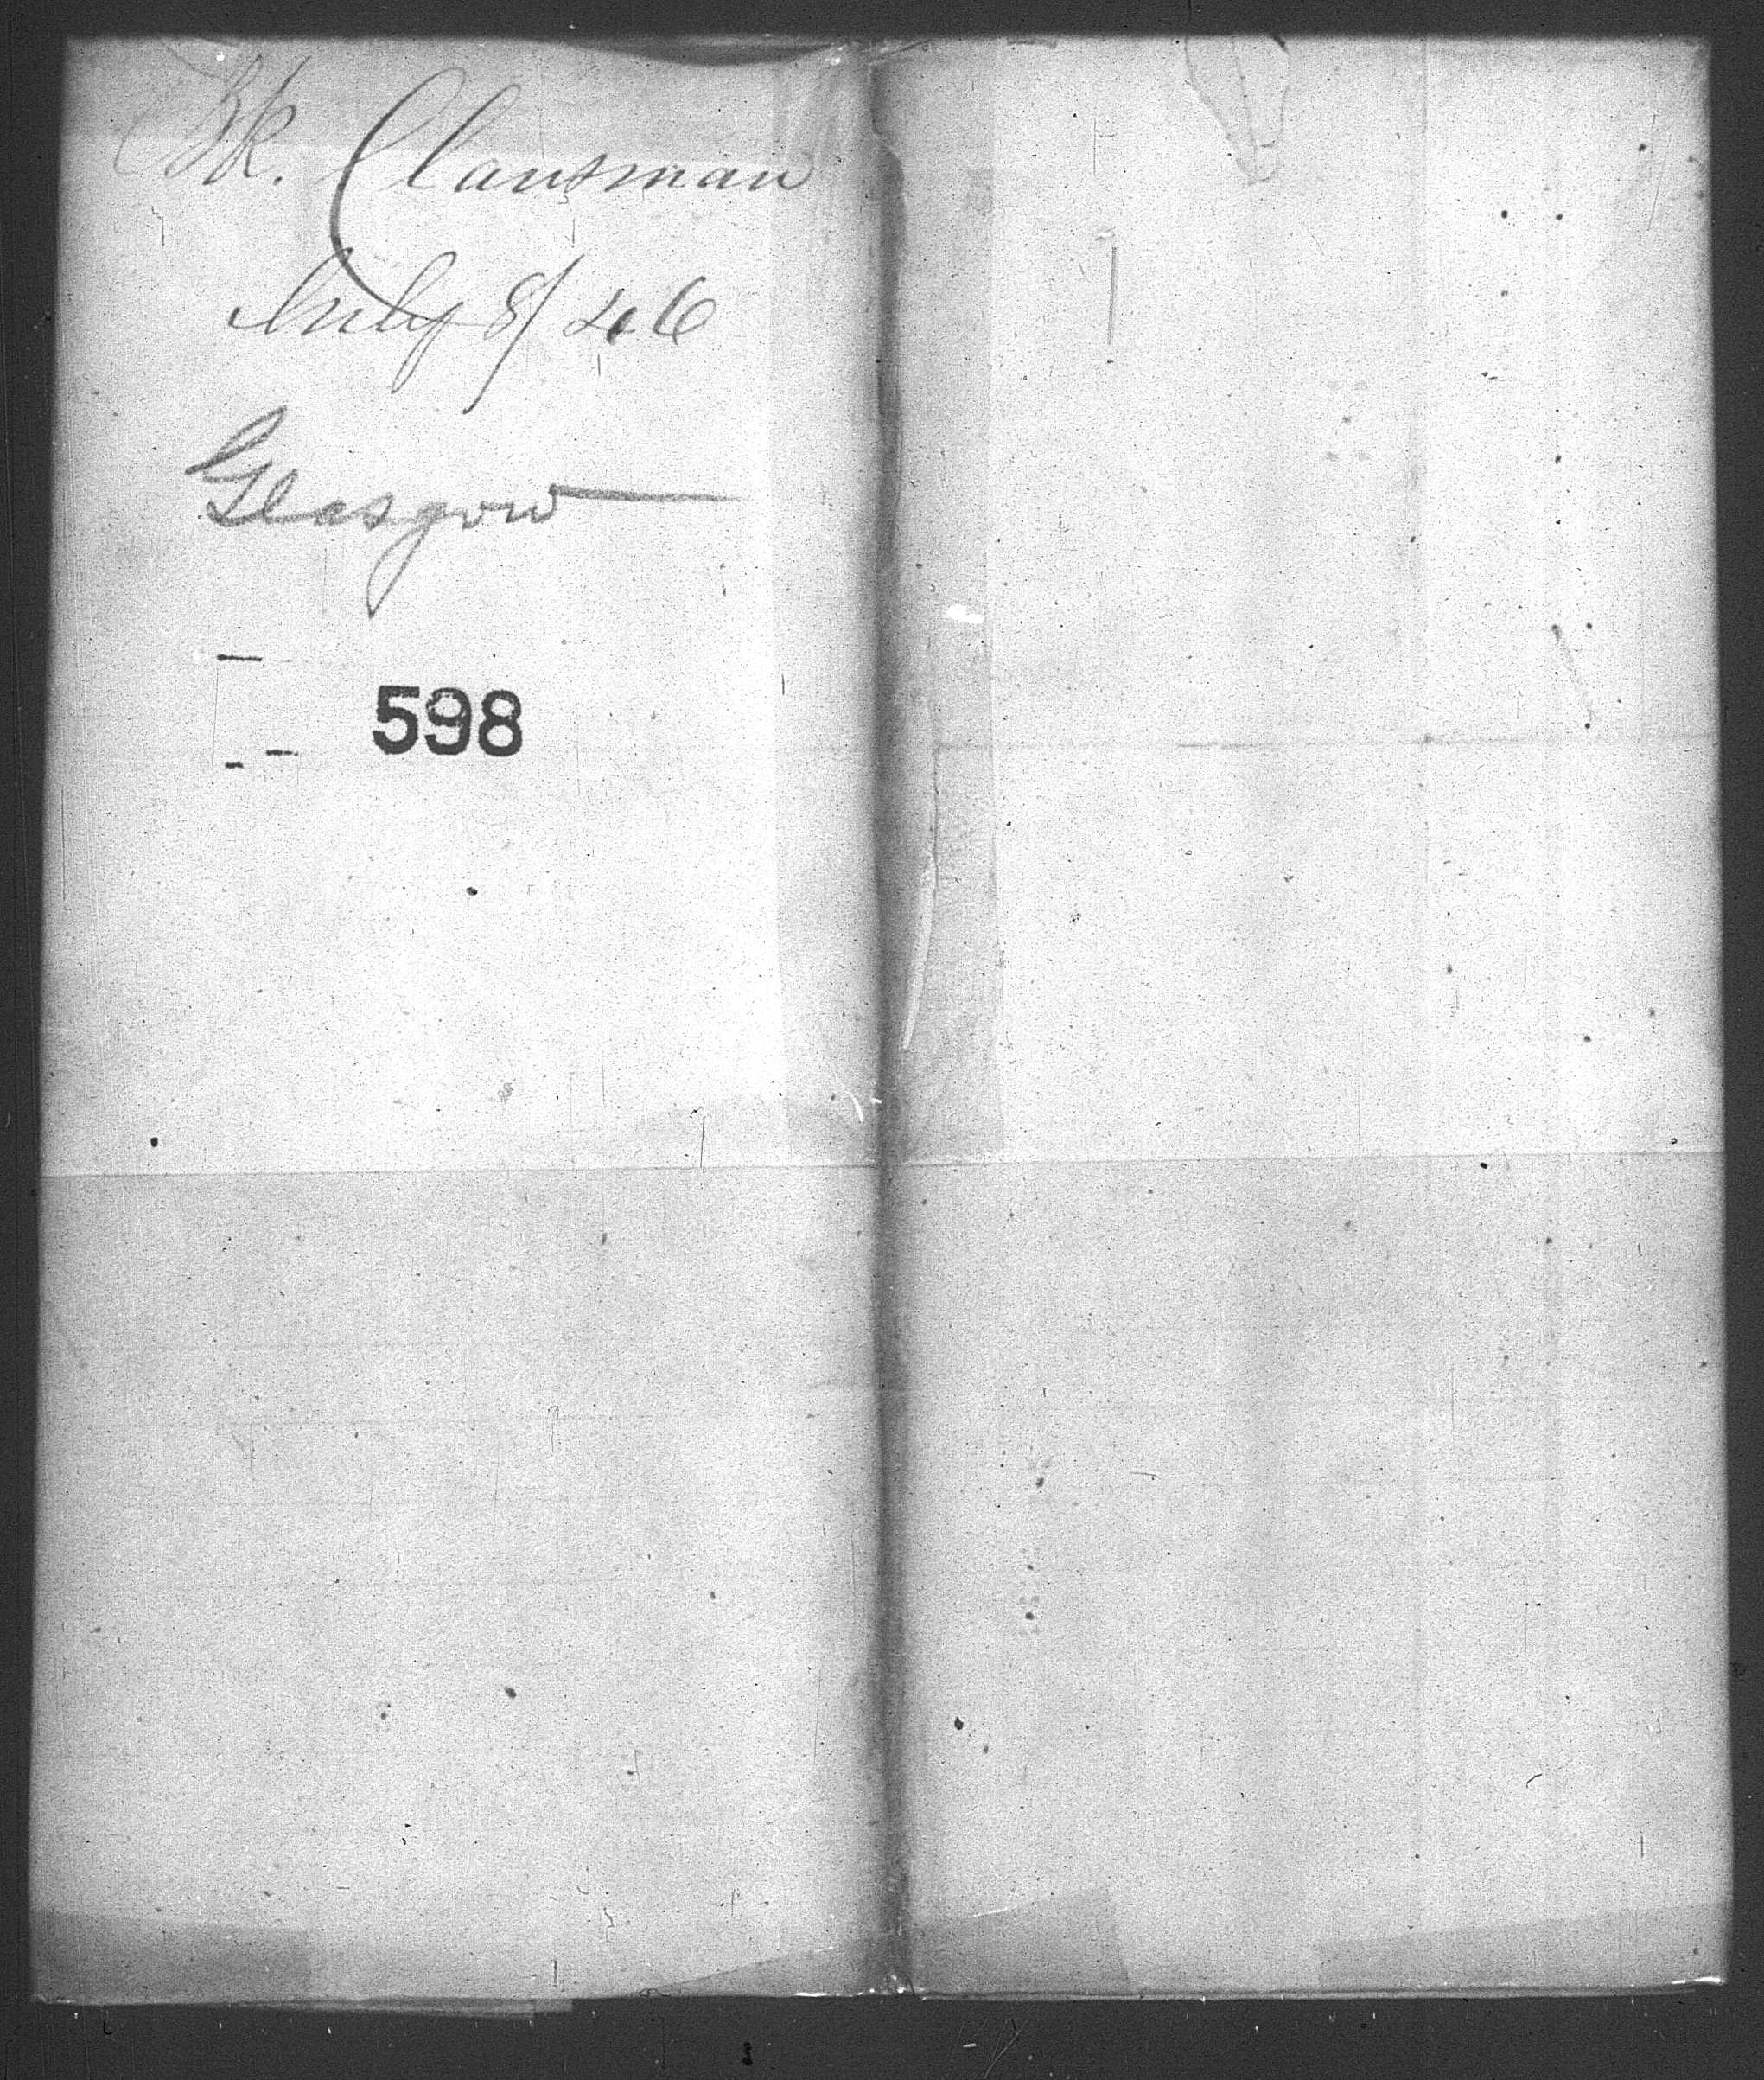 Bk. Clansman
July 8/46
Glasgow
598